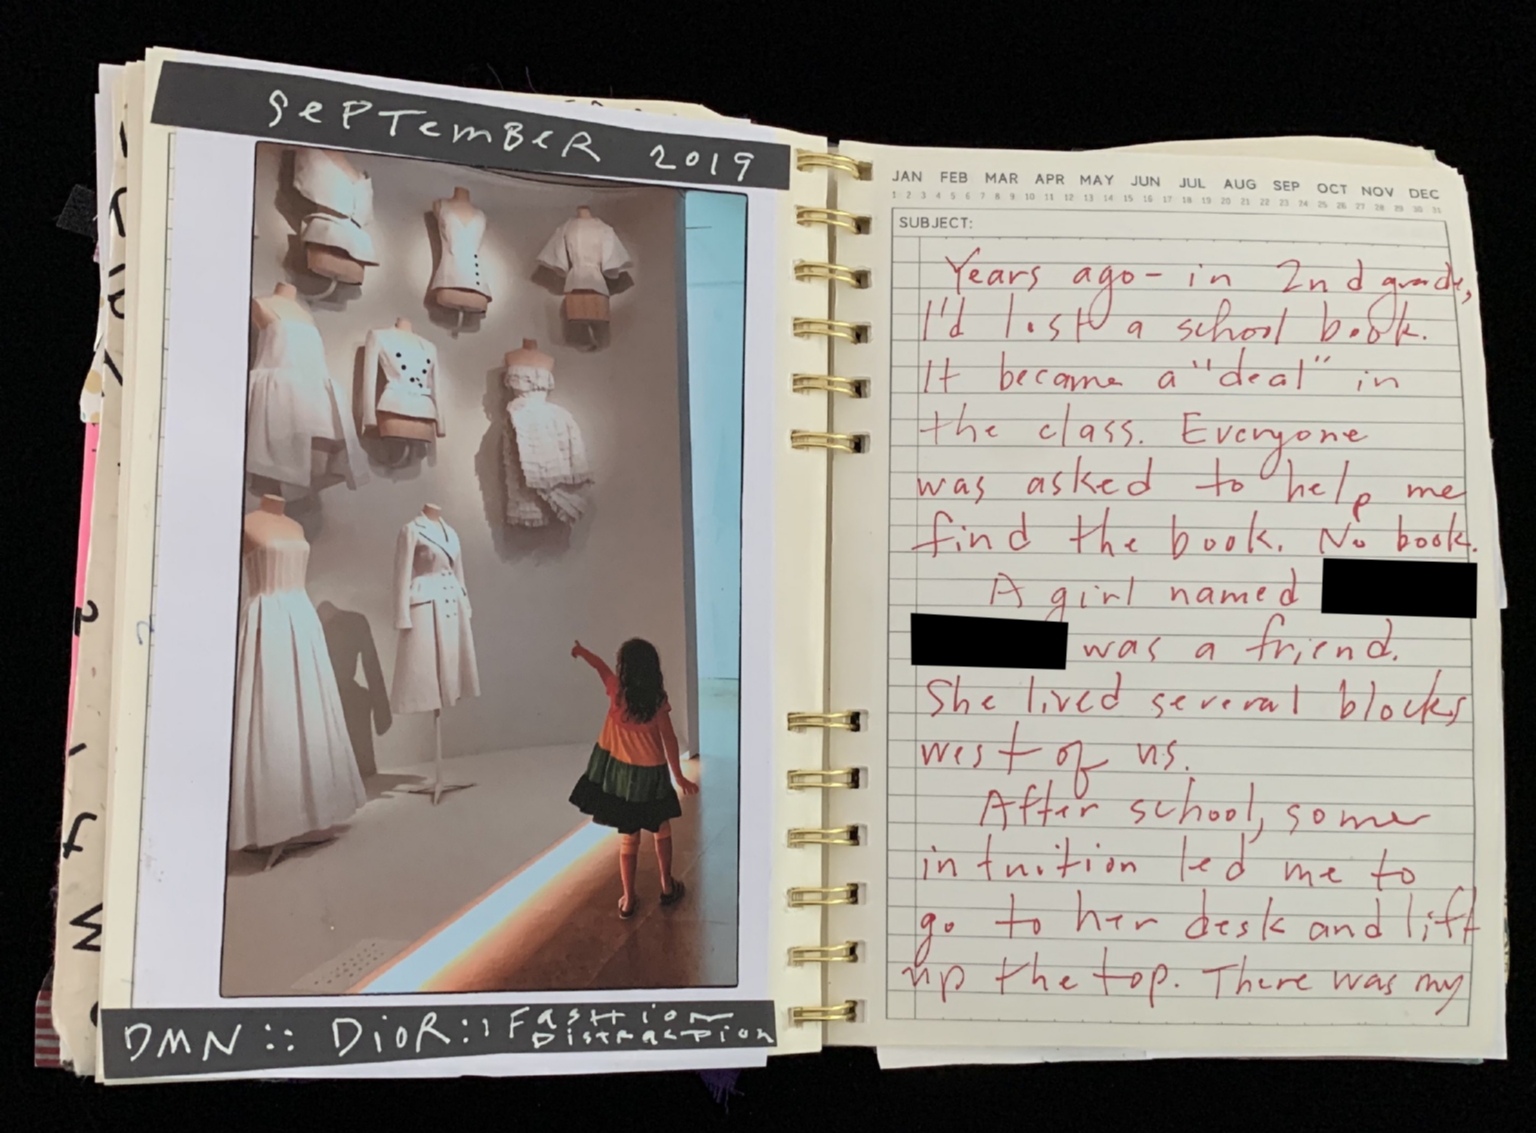 SEPTEMBER 2019
DMN :: DIOR :: FASHION
DISTRACPTION
JAN FEB MAR APR MAY JUN JUL AUG SEP OCT NOV DEC
1 2 3 4 5 6 7 8 9 10 11 12 13 14 15 16 17 18 19 20 21 22 23 24 25 26 27 28 29 30 31
SUBJECT:
Years ago - in 2nd grade,
I'd lost a school book.
It became a "deal" in
the class. Everyone
was asked to help me
find the book. No book.
A girl named
was a friend.
She lived several blocks
west of us.
After school, some
intuition led me to
go to her desk and lift
up the top. There was my